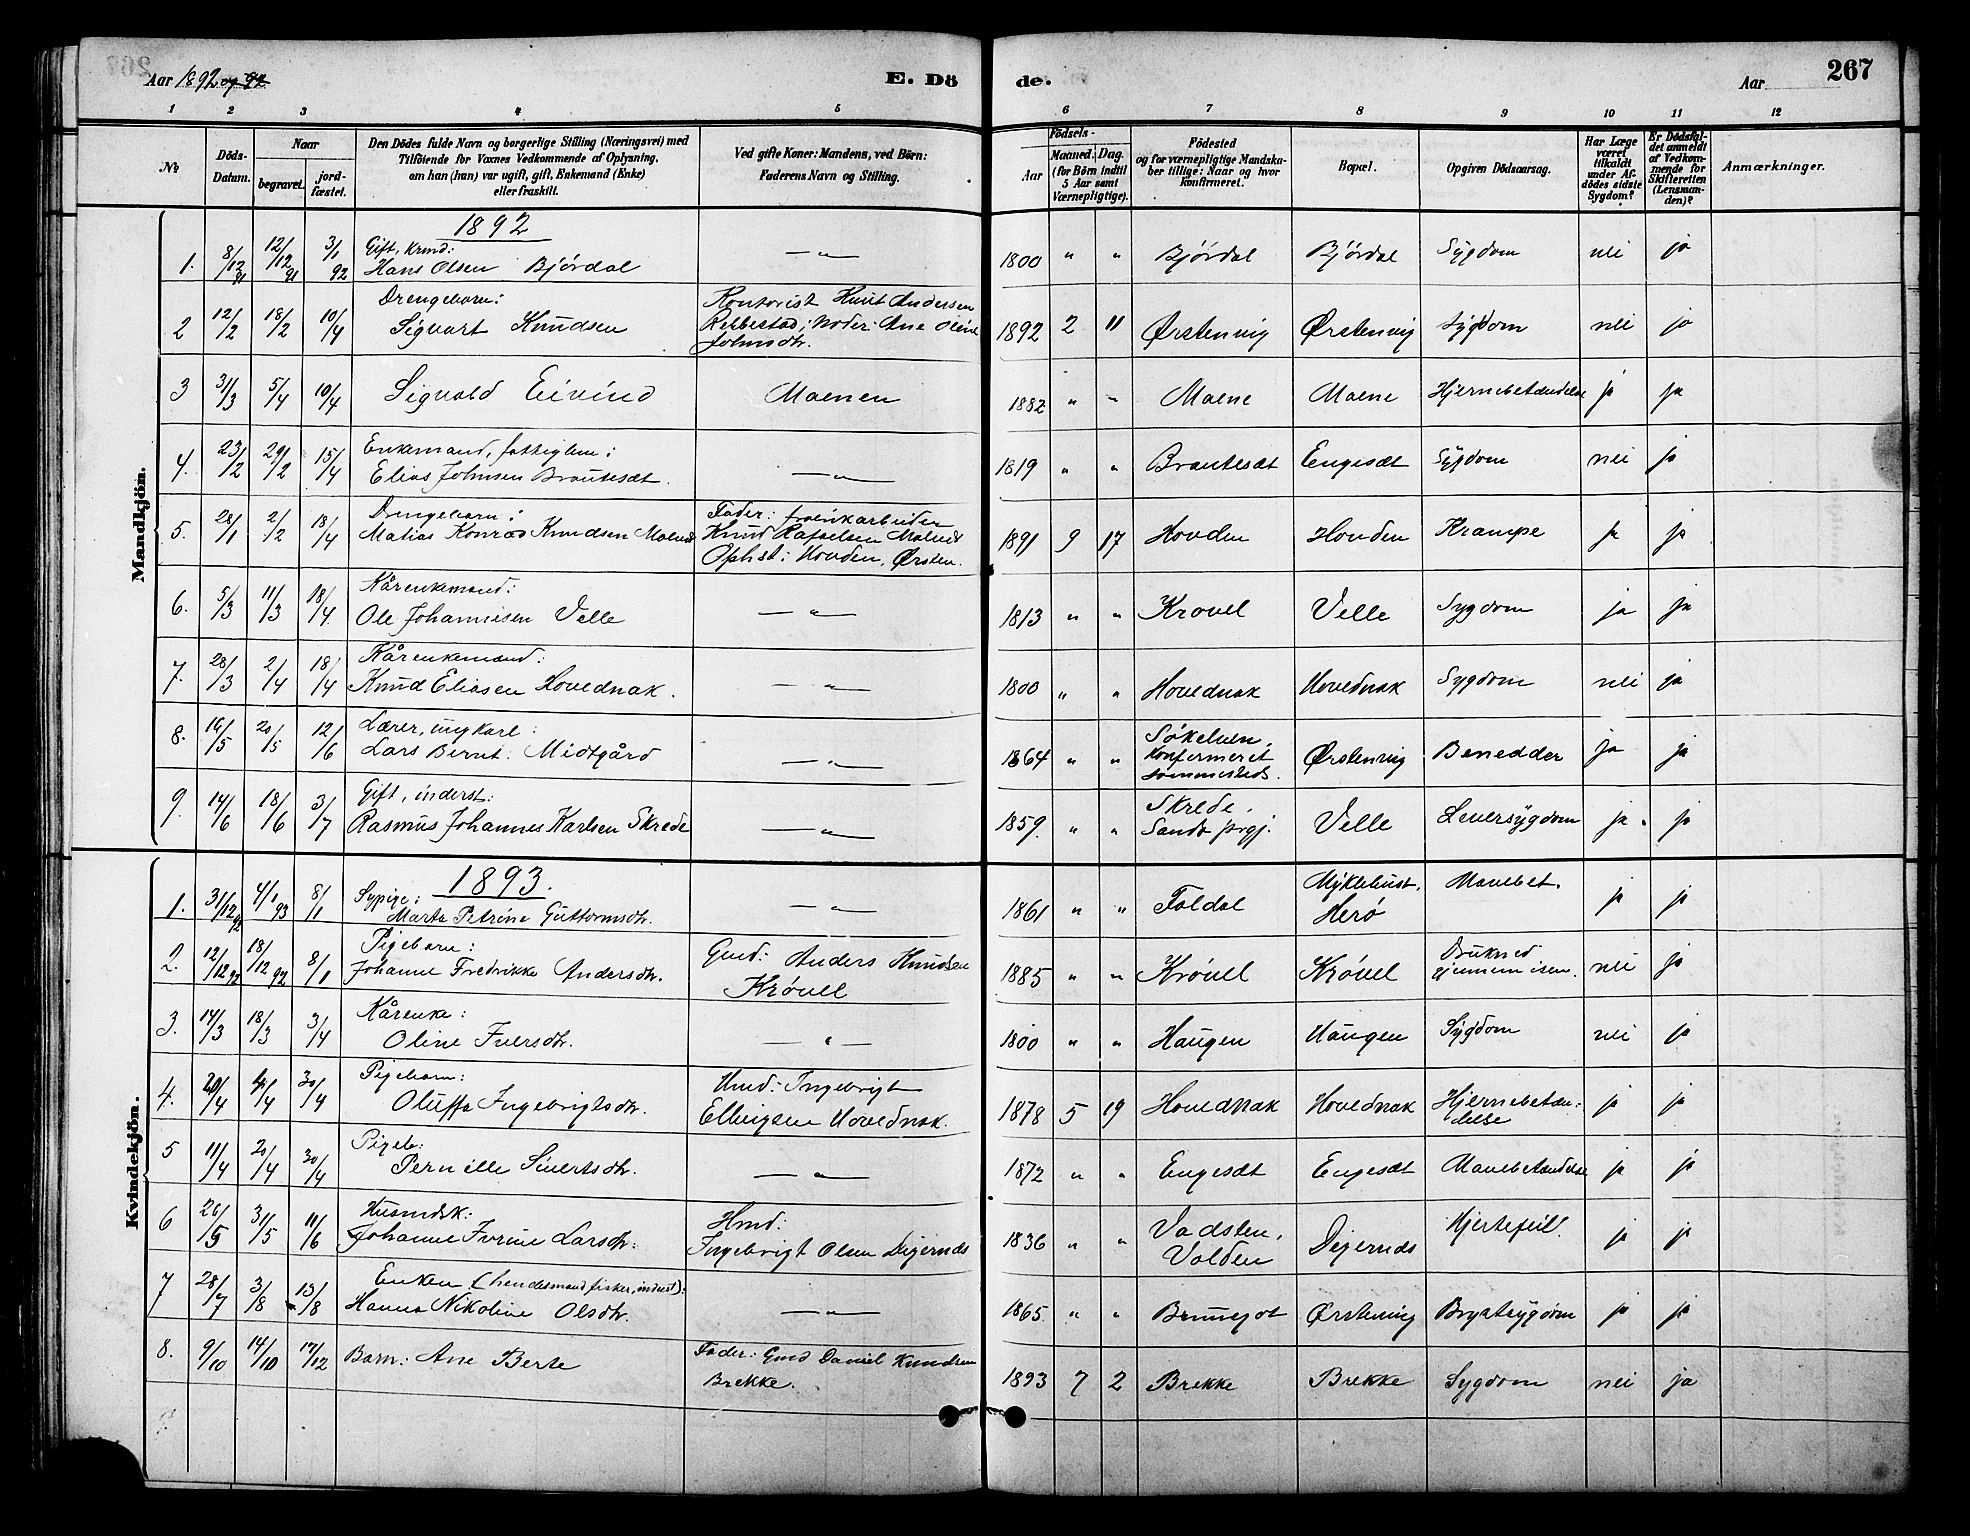 Aar 1892 og 92
E. Dö
de.
Aar
267
1 2 3 4 5 6 7 8 9 10 11 12
No
Döds-Datum.
Naar
begravet.
jordfæstet.
Den Dödes fulde Navn og borgerlige Stilling (Næringsvei) med
Tilföiende for Voxnes Vedkommende af Oplysning,
om han (hun) var ugift, gift, Enkemand (Enke)
eller fraskilt.
Ved gifte Koner: Mandens, ved Börn:
Faderens Navn og Stilling.
Födsels-
Aar
Maaned. Dag.
(for Börn indtil
5 Aar samt
Værnepligtige).
Födested
og for værnepligtige Mandska-
ber tillige: Naar og hvor
konfirmeret.
Bopæl.
Opgiven Dödsaarsag.
Har Læge
været
tilkaldt
under Af-
dödes sidste
Sygdom?
Er Dödsfal-
det anmeldt
af Vedkom-
mende for
Skifteretten
(Lensman-
den)?
Anmærkninger.
Mandkjön.
1892
1. 8/12 91 12/12 91 3/1 92 Gift, krmd:
Hans Olsen Bjørdal — " — 1800 " " Bjørdal Bjørdal Sygdom nei ja
2 12/2 18/2 10/4 Drengebarn:
Sigvart Knudsen Kontorist Knut Andersen
Rebbestad; Moder: Ane Oline
Johnsdtr. 1892 2 11 Ørstenvig Ørstenvig Sygdom nei ja
3 31/3 5/4 10/4 Sigvald Eivind Moenen 1882 " " Moene Moene Hjernebetændelse ja ja
4. 23/2 29/2 15/4 Enkemand, fattiglem:
Elias Johnsen Brautesæt. — " — 1819 " " Brautesæt Engesæt Sygdom nei ja
5. 28/1 2/2 18/4 Drengebarn:
Matias Konrad Knudsen Molvik Fader: fabrikarbeider
Knud Rafaelsen Molvik
Ophst: Hovden, Ørsten. 1891 9 17 Hovden Hovden Krampe ja ja
6. 5/3 11/3 18/4 Kårenkemand:
Ole Johannesen Velle — " — 1813 " " Krøvel Velle Sygdom ja ja
7. 28/3 2/4 18/4 Kårenkemand:
Knud Eliasen Hovednak. — " — 1800 " " Hovednak Hovednak Sygdom nei ja
8. 16/5 20/5 12/6 Lærer, ungkarl:
Lars Bernt Midtgård — " — 1864 " " Søkelven,
Konfermeret
sammesteds. Ørstenvig Benedder ja ja
9. 14/6 18/6 3/7 Gift, inderst:
Rasmus Johannes Karlsen Skrede — " — 1859. " " Skrede,
Sande prgj. Velle Leversygdom ja ja
Kvindekjön.
1893.
1. 31/12 92 4/1 93 8/1 Sypige:
Marte Petrine Guttormsdtr. — " — 1861 " " Foldal Myklebust,
Herø Mavebet. ja ja
2. 12/12 92 18/12 92 8/1 Pigebarn:
Johanne Fredrikke Andersdtr. Gmd: Anders Knudsen
Krøvel 1885 " " Krøvel Krøvel Druknet
gjennem isen. nei ja
3. 14/3 18/3 3/4 Kårenke:
Oline Iversdtr. — " — 1800 " " Haugen Haugen Sygdom nei ja
4. 30/4 Pigebarn:
Oluffa Ingebrigtsdtr. Hmd: Ingebrigt
Ellingsen Hovednak. 1878 5 19 Hovednak Hovednak Hjernebetæn-
delse ja ja
5 11/4 20/4 30/4 Pigeb:
Pernille Sivertsdtr. — " — 1872 " " Engesæt Engesæt Mavebetændelse ja ja
6 26/5 31/5 11/6 Husmdsk:
Johanne Ivrine Larsdtr: Hmd:
Ingebrigt Olsen Digernes 1836 " " Vadsten,
Volden Digernes Hjertefeil. ja ja
7 28/7 3/8 13/8 Enken (hendes mand fisker, inderst):
Hanna Nikoline Olsdtr. — " — 1865 " " Ørstenvig Brystsygdom ja ja
8. 9/10 14/10 17/12 Barn: Ane Berte Fader: Gmd Daniel Knudsen
Brekke. 1893 7 2 Brekke Brekke Sygdom nei ja